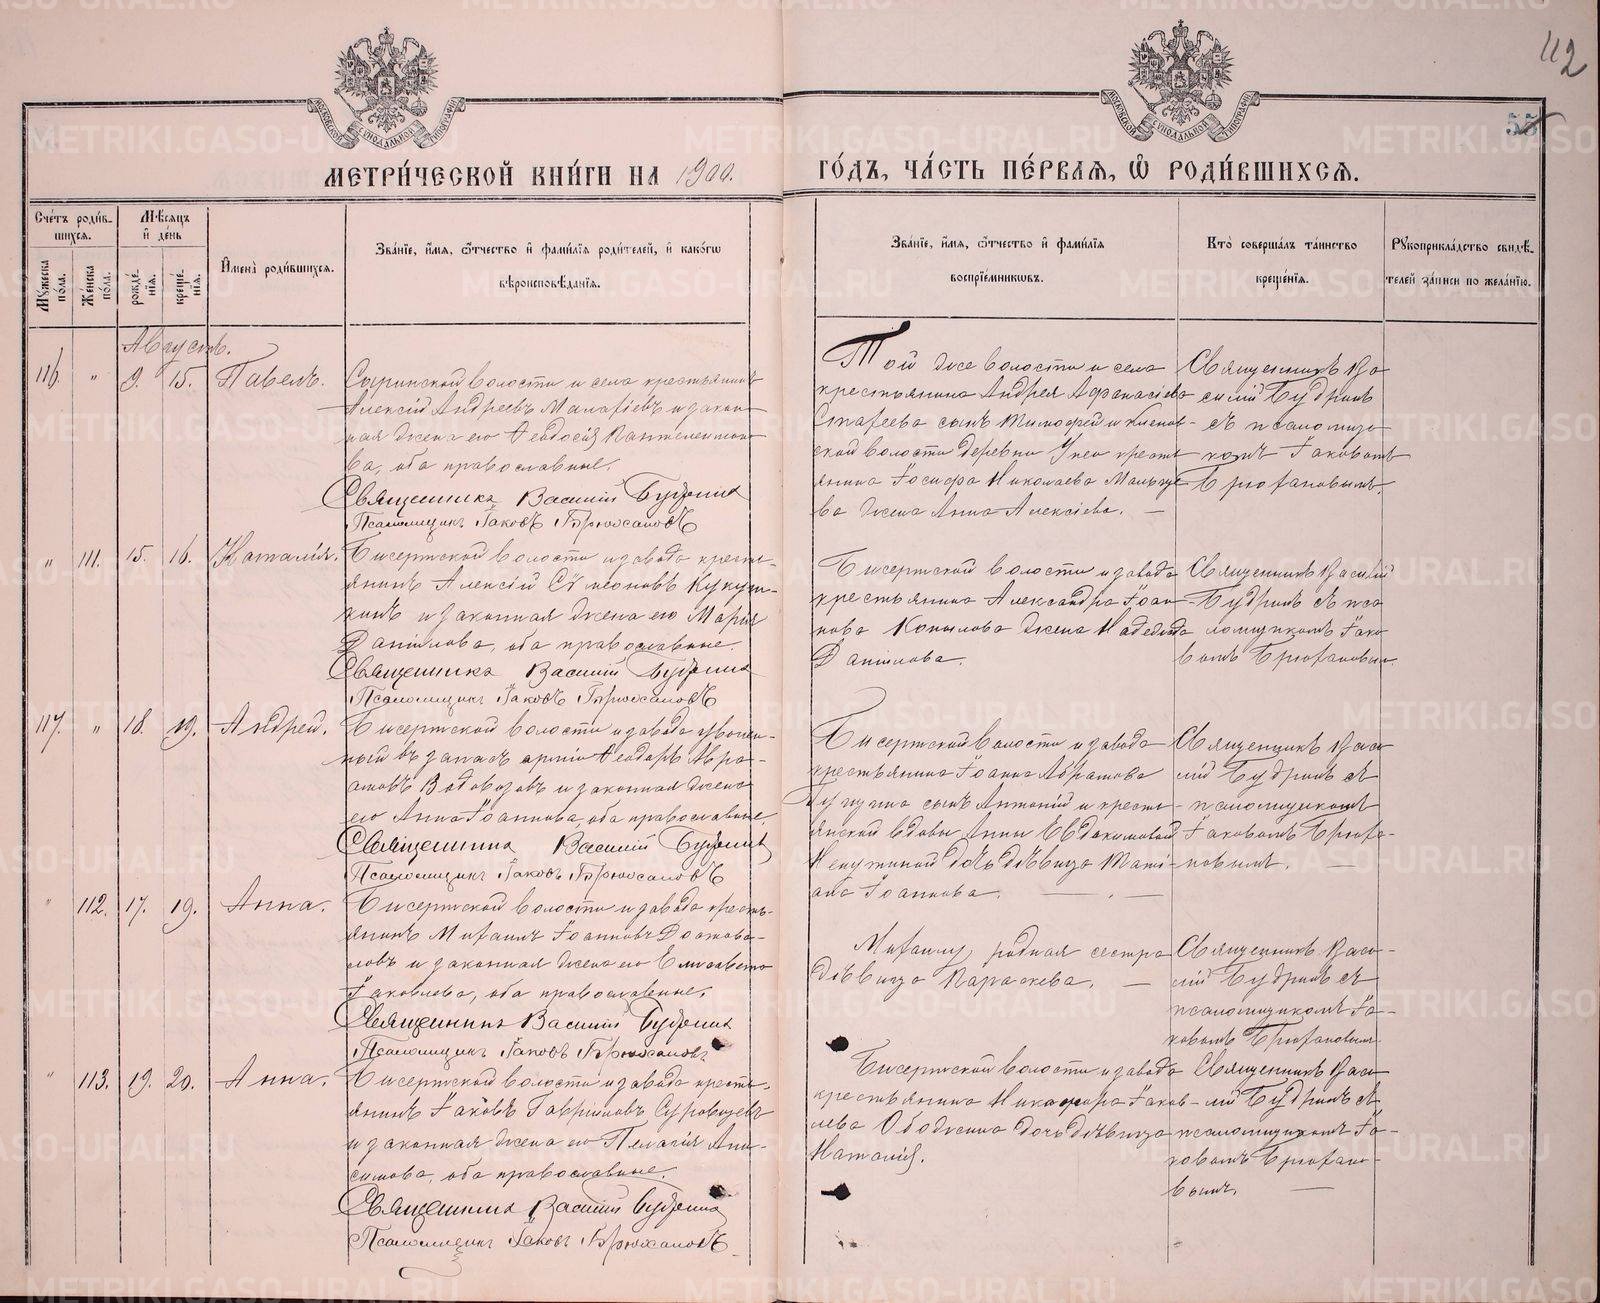 112
55
МЕТРИ́ЧЕСКОЙ КНИ́ГИ НА 1900.
ГО́ДЪ, ЧА́СТЬ ПЕ́РВАЯ, Ѡ РОДИ́ВШИХСЯ.
Сче́тъ роди́вшихся.
Мꙋ́жеска по́ла.
Же́нска по́ла.
Мѣ́сяцъ и де́нь
рожде́нїя.
креще́нїя.
И҆мена̀ роди́вшихся.
Зва́нїе, и҆́мя, ѻ҆́тчество и҆ фами́лїя роди́телей, и҆ како́гѡ
вѣроисповѣ́данїя.
Зва́нїе, и҆́мя, ѻ҆́тчество и҆ фами́лїя
воспрїе́мникѡвъ.
Кто̀ соверша́лъ та́инство
креще́нїя.
Рꙋкоприкла́дство свидѣ́-
телей за́писи по жела́нїю.
Августъ.
116. " 9. 15. Павелъ.
Сыринской волости и села крестьянинъ
Алексій Андреевъ Малафіевъ и закон-
ная жена его Ѳеодосія Пантелеимоно-
ва, оба православные.
Священникъ Василій Будринъ
Псаломщикъ Іаковъ Брюхановъ
Той же волости и села
крестьянина Андрея Афанасіева
сынъ Тимофей и Кленов-
ской волости деревни крестьянина Іосифа Николаева
жена Анна Алексіева. —
Священникъ Ва-
силій Будринъ
съ псаломщи-
комъ Іаковомъ
Брюхановымъ.
" 111. 15. 16. Наталія.
Бисертской волости и завода кресть-
янинъ Алексій Сѵмеоновъ Кукуш-
кинъ и законная жена его Марія
Даніилова, оба православные.
Священникъ Василій Будринъ
Псаломщикъ Іаковъ Брюхановъ
Бисертской волости и завода
крестьянина Александра Іоан-
нова Копылова жена Надежда
Даніилова.
Священникъ Василій
Будринъ съ пса-
ломщикомъ Іако-
вомъ Брюхановымъ
117. " 18. 19. Андрей.
Бисертской волости и завода уволен-
ный въ запасъ арміи Ѳеодоръ Авра-
амовъ Водовозовъ и законная жена
его Анна Іоаннова, оба православные.
Священникъ Василій Будринъ
Псаломщикъ Іаковъ Брюхановъ
Бисертской волости и завода
крестьянина Іоанна Абрамова
сынъ Антоній и кресть-
янской вдовы Анны Евдокимовой
дочь дѣвица Тати-
ана Іоаннова. —
Священникъ Васи-
лій Будринъ съ
псаломщикомъ
Іаковомъ Брюха-
новымъ. —
" 112. 17. 19. Анна.
Бисертской волости и завода кресть-
янинъ Михаилъ Іоанновъ
и законная жена его Елисавета
Іаковлева, оба православные.
Священникъ Василій Будринъ
Псаломщикъ Іаковъ Брюхановъ
Михаилу родная сестра
дѣвица Параскева. —
Священникъ Васи-
лій Будринъ съ
псаломщикомъ Іа-
ковомъ Брюхановымъ
" 113. 19. 20. Анна.
Бисертской волости и завода кресть-
янинъ Іаковъ Гавріиловъ Суровцевъ
и законная жена его Пелагія Ани-
симова, оба православные.
Священникъ Василій Будринъ
Псаломщикъ Іаковъ Брюхановъ
Бисертской волости и завода
крестьянина Никифора Іаков-
лева Ободина дочь дѣвица
Наталія.
Священникъ Васи-
лій Будринъ съ
псаломщикомъ Іа-
ковомъ Брюхано-
вымъ. —
METRIKI.GASO-URAL.RU